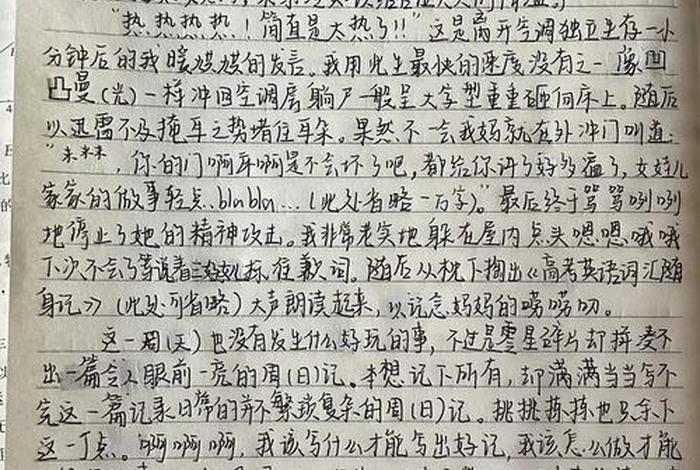 "热热热热！简直是太热了!!"这是离开空调独立生存一小
分钟后的我瞎嫫嫫的发言。我用此生最快的速度没有之一像凹
凸曼(光)一样冲回空调房躺尸一般呈大字型重重砸向床上。随后
以迅雷不及掩耳之势堵住耳朵。果然不一会我妈就在外冲门叫道：
"，你的门啊耳啊是不会坏了吧，都给你讲了好多遍了，女娃儿
家家的做事轻点..blabla...(此处省略一万字)。"最后终于骂骂咧咧
地停止了她的精神攻击。我非常老实地躲在屋内点头嗯嗯哦哦
下次不会了等说着抹往歉词。随后从枕下掏出《高考英语词汇随
身记》(此处可省略)大声朗读起来，以记念妈妈的唠唠叨。
这一周(天)也没有发生什么好玩的事，不过是零星碎片却拼凑不
出一篇令人眼前一亮的周(日)记。本想记下所有，却满满当当写不
完这一篇记录日常的并不繁琐复杂的周(日)记。挑挑拣拣也只余下
这一丁点。啊啊啊啊，我该写什么才能写出好记，我该怎么做才能